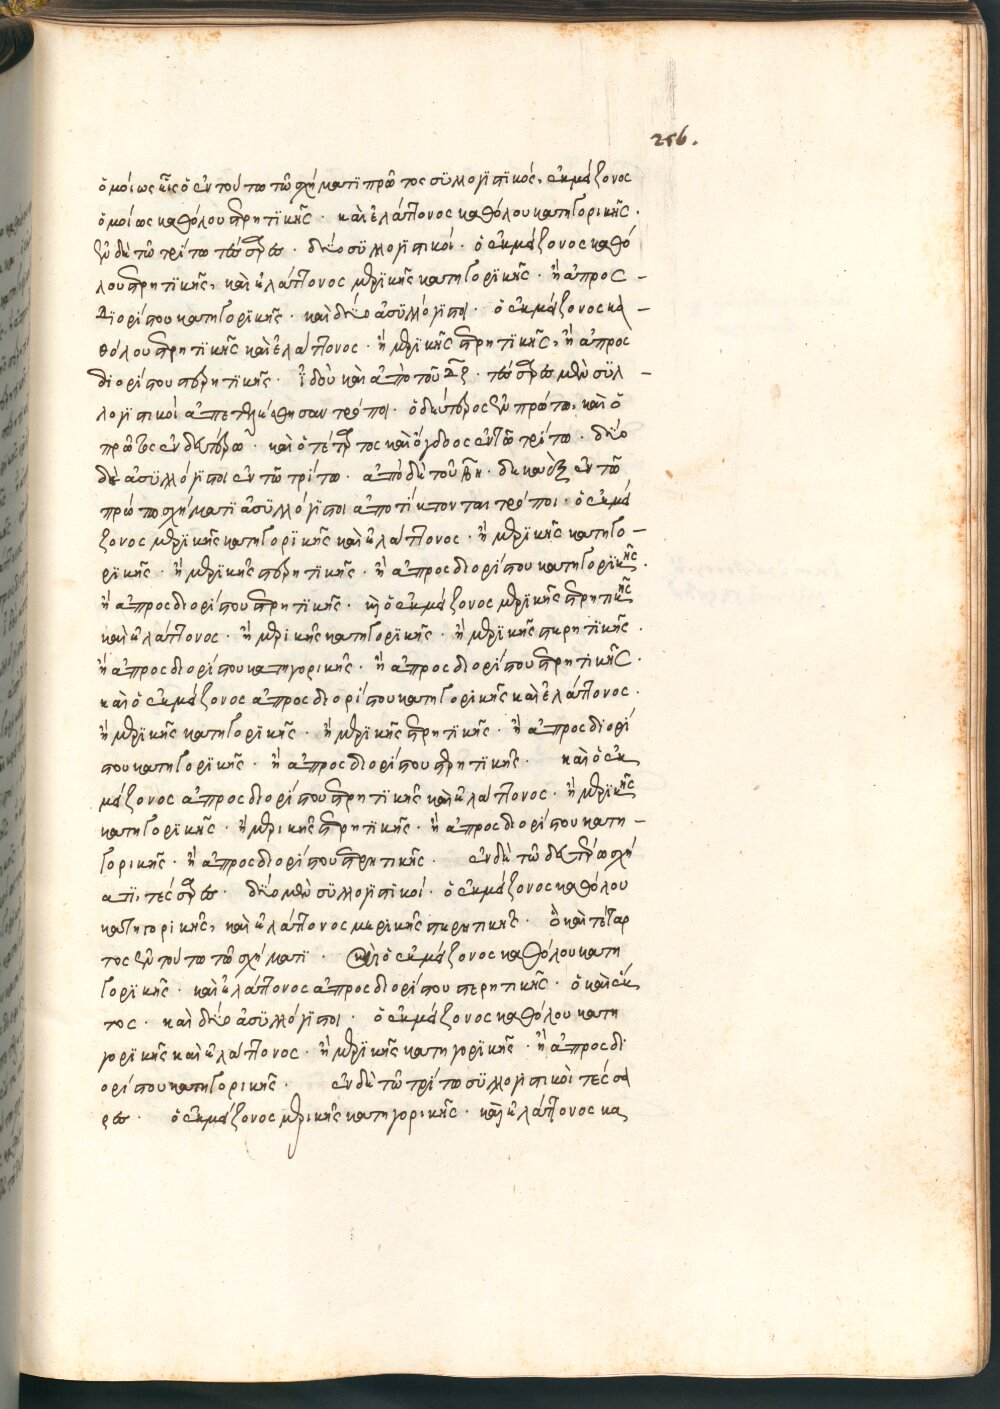 256.
ὁμοίως καὶ ὁ ἐν τούτω τῶ σχήματι πρῶτος συλλογιστικός, ἐκ μείζονος
ὁμοίως καθόλου στερητικῆς · καὶ ἐλάττονος καθόλου κατηγορικῆς ·
ἐν δὲ τῶ τρίτω τέσσαρες · δύο συλλογιστικοί · ὁ ἐκ μείζονος καθό
λου στερητικῆς, καὶ ἐλάττονος μερικῆς κατηγορικῆς · ἢ ἀπροσ –
διορίστου κατηγορικῆς · καὶ δύο ἀσυλλόγιστοι · ὁ ἐκ μείζονος κα –
θόλου στερητικῆς καὶ ἐλάττονος · ἢ μερικῆς στερητικῆς, ἢ ἀπροσ
διορίστου στερητικῆς · ἰδοὺ καὶ ἀπὸ τοῦ · τέσσαρες μὲν συλ –
λογιστικοί ἀπετέχθησαν τρόποι · ὁ δεύτερος ἐν πρώτω, καὶ ὁ
πρῶτος ἐν δευτέρω · καὶ ὁ τέταρτος καὶ ὄγδοος ἐν τῶ τρίτω · δύο
δὲ ἀσυλλόγιστοι ἐν τῶ τρίτω · ἀπὸ δὲ τοῦ · δεκαὲξ ἐν τῶ
πρώτω σχήματι ἀσυλλόγιστοι ἀποτίκτονται τρόποι · ὁ ἐκ μεί
ζονος μερικῆς κατηγορικῆς καὶ ἐλάττονος · ἢ μερικῆς κατηγο –
ρικῆς · ἢ μερικῆς στερητικῆς · ἢ ἀπροσδιορίστου κατηγορικῆς ·
ἢ ἀπροσδιορίστου στερητικῆς · καὶ ὁ ἐκ μείζονος μερικῆς στερητικῆς
καὶ ἐλάττονος · ἢ μερικῆς κατηγορικῆς · ἢ μερικῆς στερητικῆς ·
ἢ ἀπροσδιορίστου κατηγορικῆς · ἢ ἀπροσδιορίστου στερητικῆς ·
καὶ ὁ ἐκ μείζονος ἀπροσδιορίστου κατηγορικῆς καὶ ἐλάττονος ·
ἢ μερικῆς κατηγορικῆς · ἢ μερικῆς στερητικῆς · ἢ ἀπροσδιορί
στου κατηγορικῆς · ἢ ἀπροσδιορίστου στερητικῆς · καὶ ὁ ἐκ
μείζονος ἀπροσδιορίστου στερητικῆς καὶ ἐλάττονος · ἢ μερικῆς
κατηγορικῆς · ἢ μερικῆς στερητικῆς · ἢ ἀπροσδιορίστου κατη –
γορικῆς · ἢ ἀπροσδιορίστου στερητικῆς · ἐν δὲ τῶ δευτέρω σχή
ατι, τέσσαρες · δύο μὲν συλλογιστικοί · ὁ ἐκ μείζονος καθόλου
κατηγορικῆς, καὶ ἐλάττονος μερικῆς στερητικῆς · ὃ καὶ τέταρ
τος ἐν τούτω τῶ σχήματι · καὶ ὁ ἐκ μείζονος καθόλου κατη
γορικῆς · καὶ ἐλάττονος ἀπροσδιορίστου στερητικῆς · ὁ καὶ ἕκ
τος · καὶ δύο ἀσυλλόγιστοι · ὁ ἐκ μείζονος καθόλου κατη
γορικῆς καὶ ἐλάττονος · ἢ μερικῆς κατηγορικῆς · ἢ ἀπροσδι
ορίστου κατηγορικῆς · ἐν δὲ τῶ τρίτω συλλογιστικοὶ τέσσα
ρες · ὁ ἐκ μείζονος μερικῆς κατηγορικῆς · καὶ ἐλάττονος κα